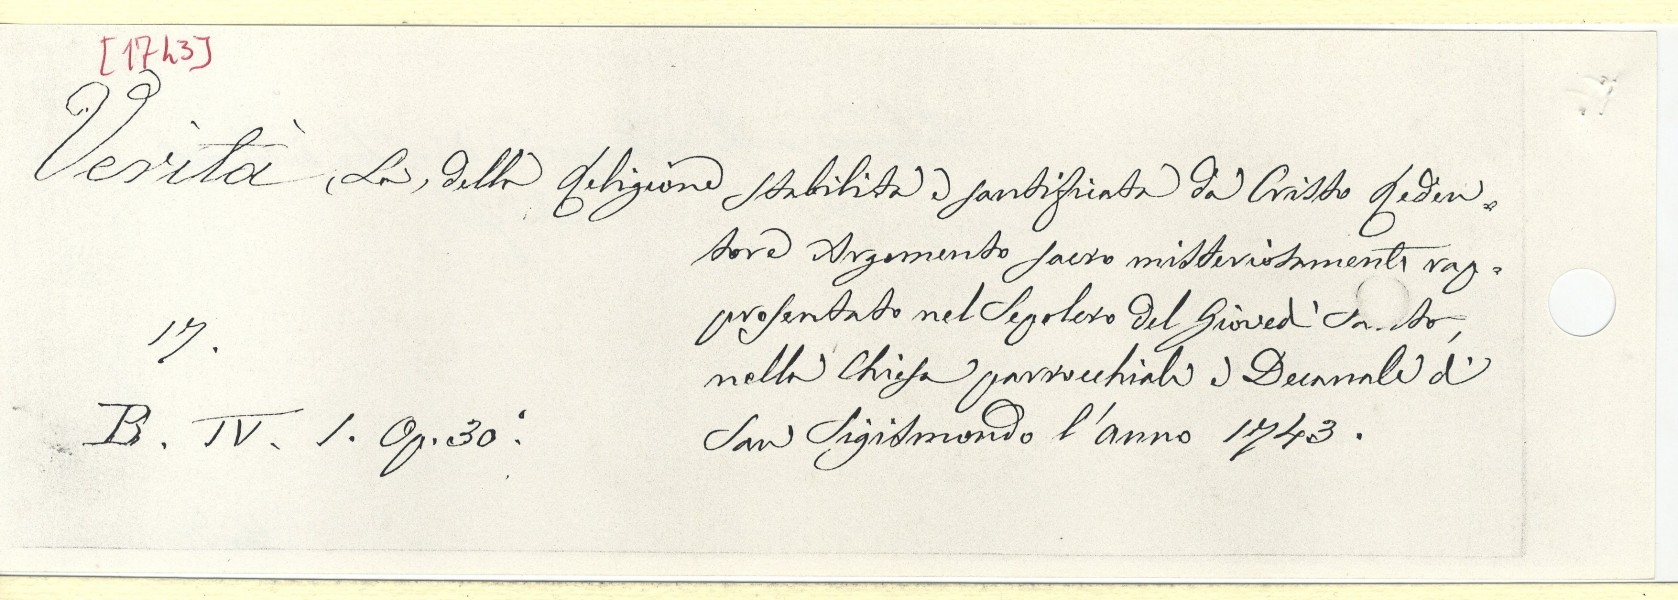 [1743]
Verità, La, della Religione stabilita e santificata da Cristo Reden=
tore Argomento sacro misteriosamente rap=
presentato nel Sepolcro del Giovedì Santo,
nella Chiesa parrocchiale e Decanale di
San Sigismondo l'anno 1743.
17.
B. IV. 1. Op. 30: